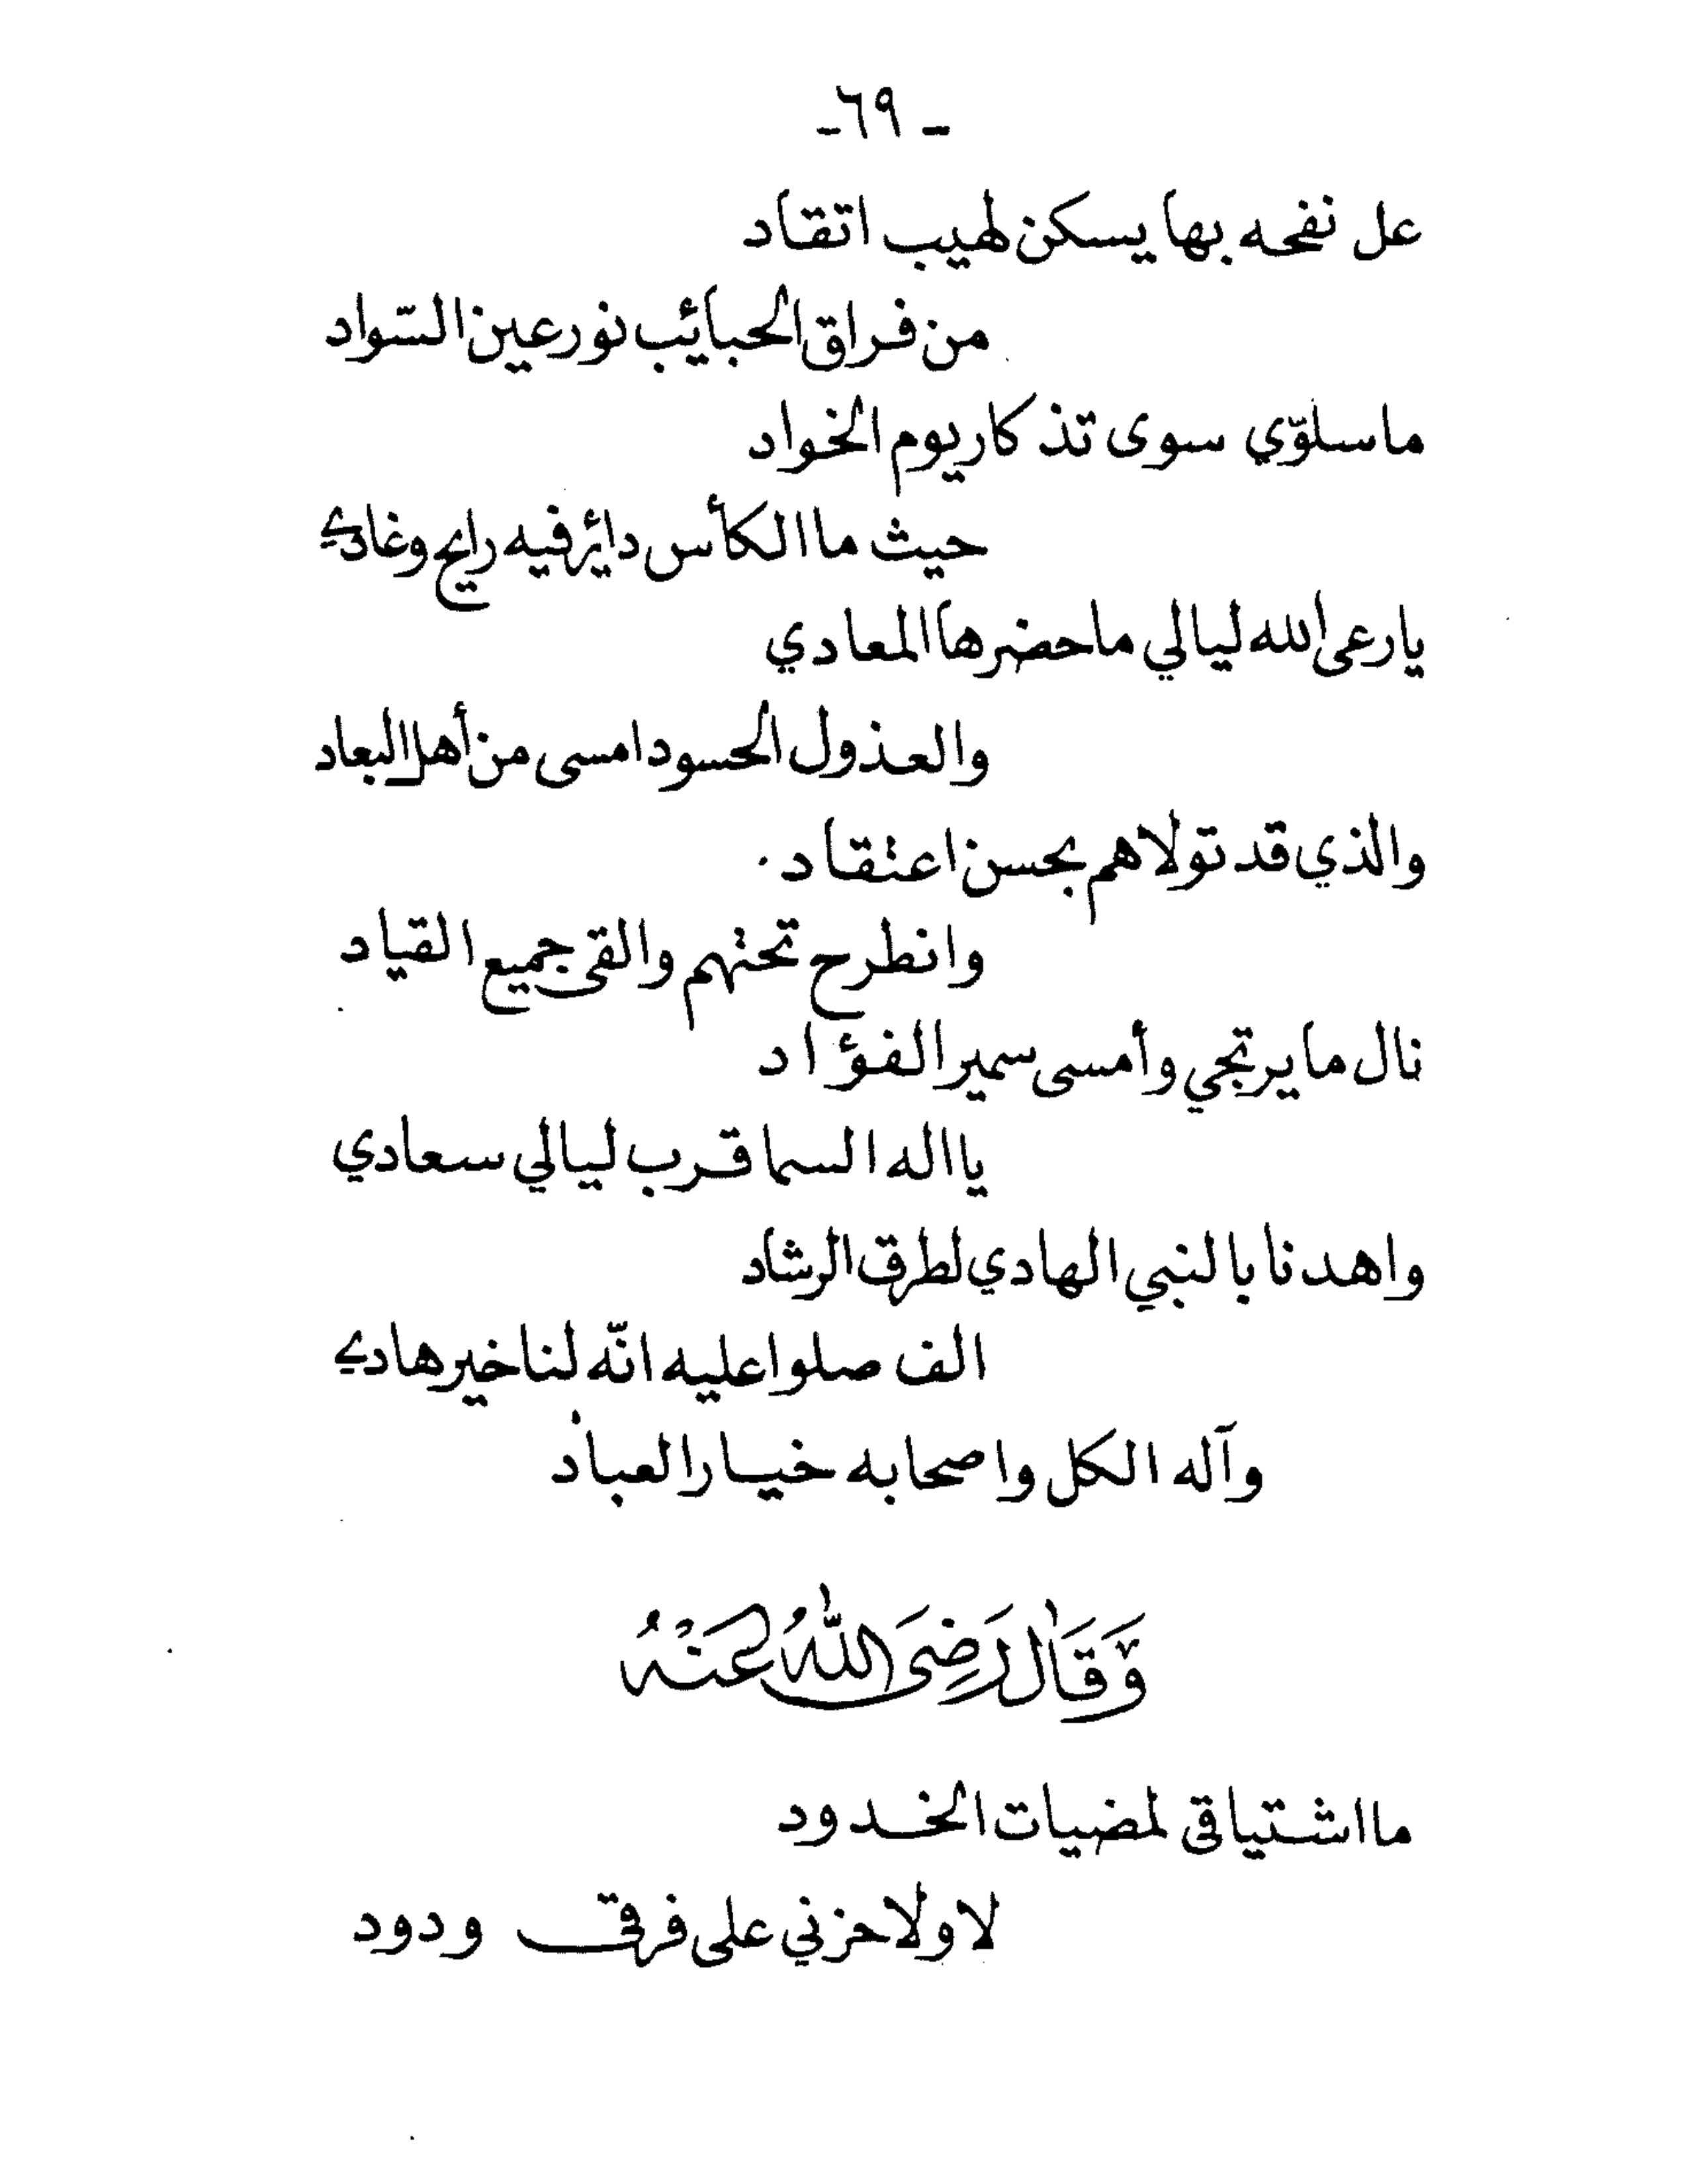 - ٦٩ -
عل نفحه بها يسكن لهيب اتقاد
من فراق الحبائب نور عين السّواد
ما سلوّي سوى تذكار يوم الخواد
حيث ما الكأس دائر فيه رايح وغادي
يا رعى الله ليالي ما حضرها المعادي
والعذول الحسود امسى من أهل البعاد
والذي قد تولاهم بحسن اعتقاد
وانطرح تحتهم والقى جميع القياد
نال ما يرتجي وأمسى سمير الفؤاد
يا اله السما قرب ليالي سعادي
واهدنا بالنبي الهادي لطرق الرشاد
الف صلوا عليه انّه لنا خير هادي
وآله الكل واصحابه خيار العباد
وَقَالَ رَضِىَ اللهُ عَنْهُ
ما اشتياقي لمضيات الخدود
لا ولا حزني على فرقى ودود